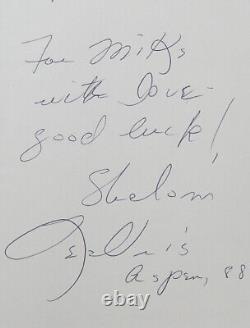 For Miks
with love-
good luck!
Shalom
Aspen, 88
ebay